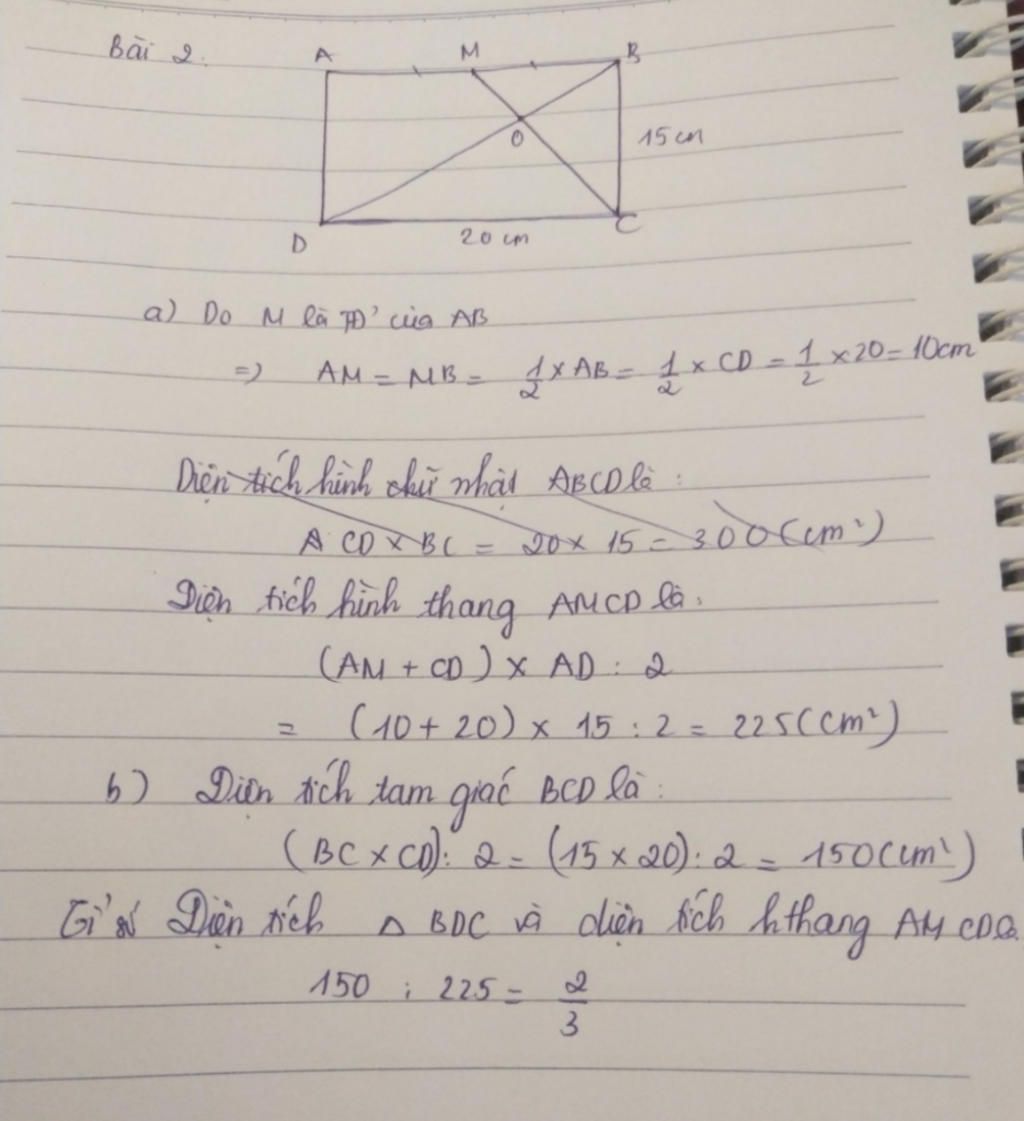 Bài 2.
A M B
O
15 cm
D 20 cm C
a) Do M là TĐ' của AB
=> AM = MB = 1/2 × AB = 1/2 × CD = 1/2 × 20 = 10cm
Diện tích hình chữ nhật ABCD là :
A CD × BC = 20 × 15 = 300 (cm²)
Diện tích hình thang AMCD là.
(AM + CD) × AD : 2
= (10 + 20) × 15 : 2 = 225 (cm²)
b) Diện tích tam giác BCD là :
(BC × CD) : 2 = (15 × 20) : 2 = 150 (cm²)
Diện tích △ BDC và diện tích hthang AMCD là
150 : 225 = 2/3